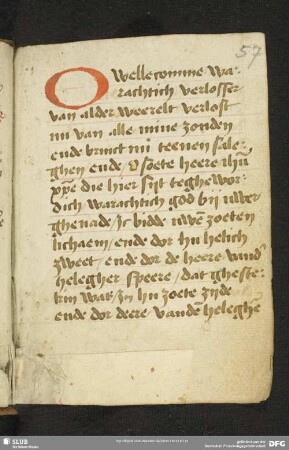 57
O Wellecomme wa-
rachtich verlosser
van alder weerelt verlost
mi van alle mine zonden
ende brinct mi teenen sale-
ghen ende / O soete heere ihū
xp̄e die hier sijt teghewor-
dich warachtich god bij uwer
ghenade / Ic bidde uwē zoeten
lichaem / ende dor hu helich
zweet / ende dor de heere vand
helegher speere / dat gheste-
kin was / in hu zoete zijde
ende dor deere / vandē heleghē
SLUB
DFG